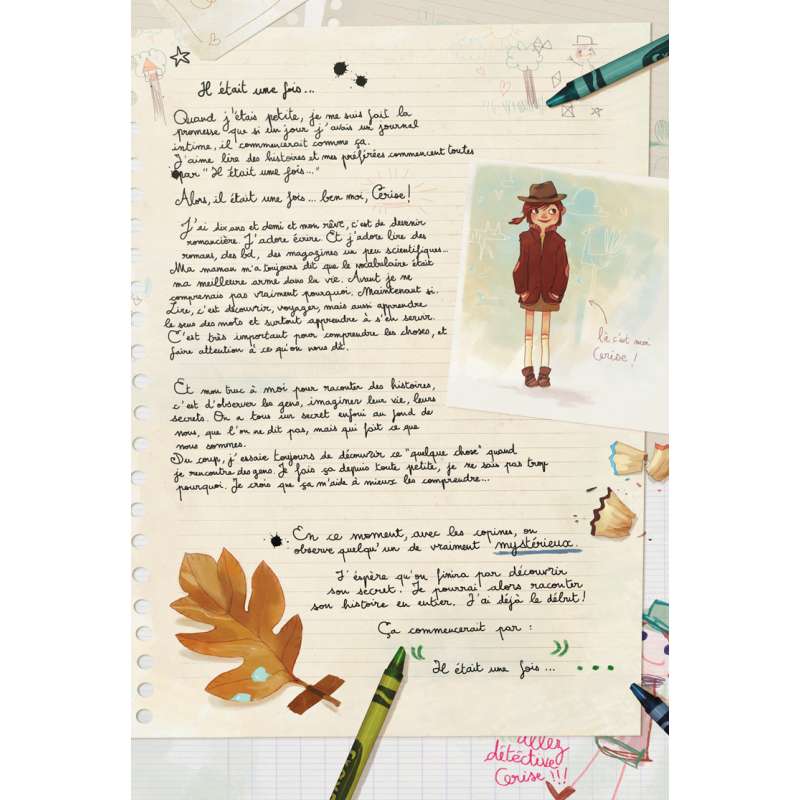 Il était une fois...
Quand j'étais petite, je me suis fait la
promesse que si un jour j'avais un journal
intime, il commencerait comme ça.
J'aime lire des histoires et mes préférées commencent toutes
par "Il était une fois..."
Alors, il était une fois... ben moi, Cerise!
J'ai dix ans et demi et mon rêve, c'est de devenir
romancière. J'adore écrire. Et j'adore lire des
romans, des bd, des magazines un peu scientifiques...
Ma maman m'a toujours dit que le vocabulaire était
ma meilleure arme dans la vie. Avant je ne
comprenais pas vraiment pourquoi. Maintenant si.
Lire, c'est découvrir, voyager, mais aussi apprendre
le sens des mots et surtout apprendre à s'en servir.
C'est très important pour comprendre les choses, et
faire attention à ce qu'on nous dit.
là c'est moi
Cerise!
Et mon truc à moi pour raconter des histoires,
c'est d'observer les gens, imaginer leur vie, leurs
secrets. On a tous un secret enfoui au fond de
nous, que l'on ne dit pas, mais qui fait ce que
nous sommes.
Du coup, j'essaie toujours de découvrir ce "quelque chose" quand
je rencontre des gens. Je fais ça depuis toute petite, je ne sais pas trop
pourquoi. Je crois que ça m'aide à mieux les comprendre...
En ce moment, avec les copines, on
observe quelqu'un de vraiment mystérieux.
J'espère qu'on finira par découvrir
son secret! Je pourrai alors raconter
son histoire en entier. J'ai déjà le début!
Ça commencerait par :
"Il était une fois..." ...
allez
détective
Cerise!!!